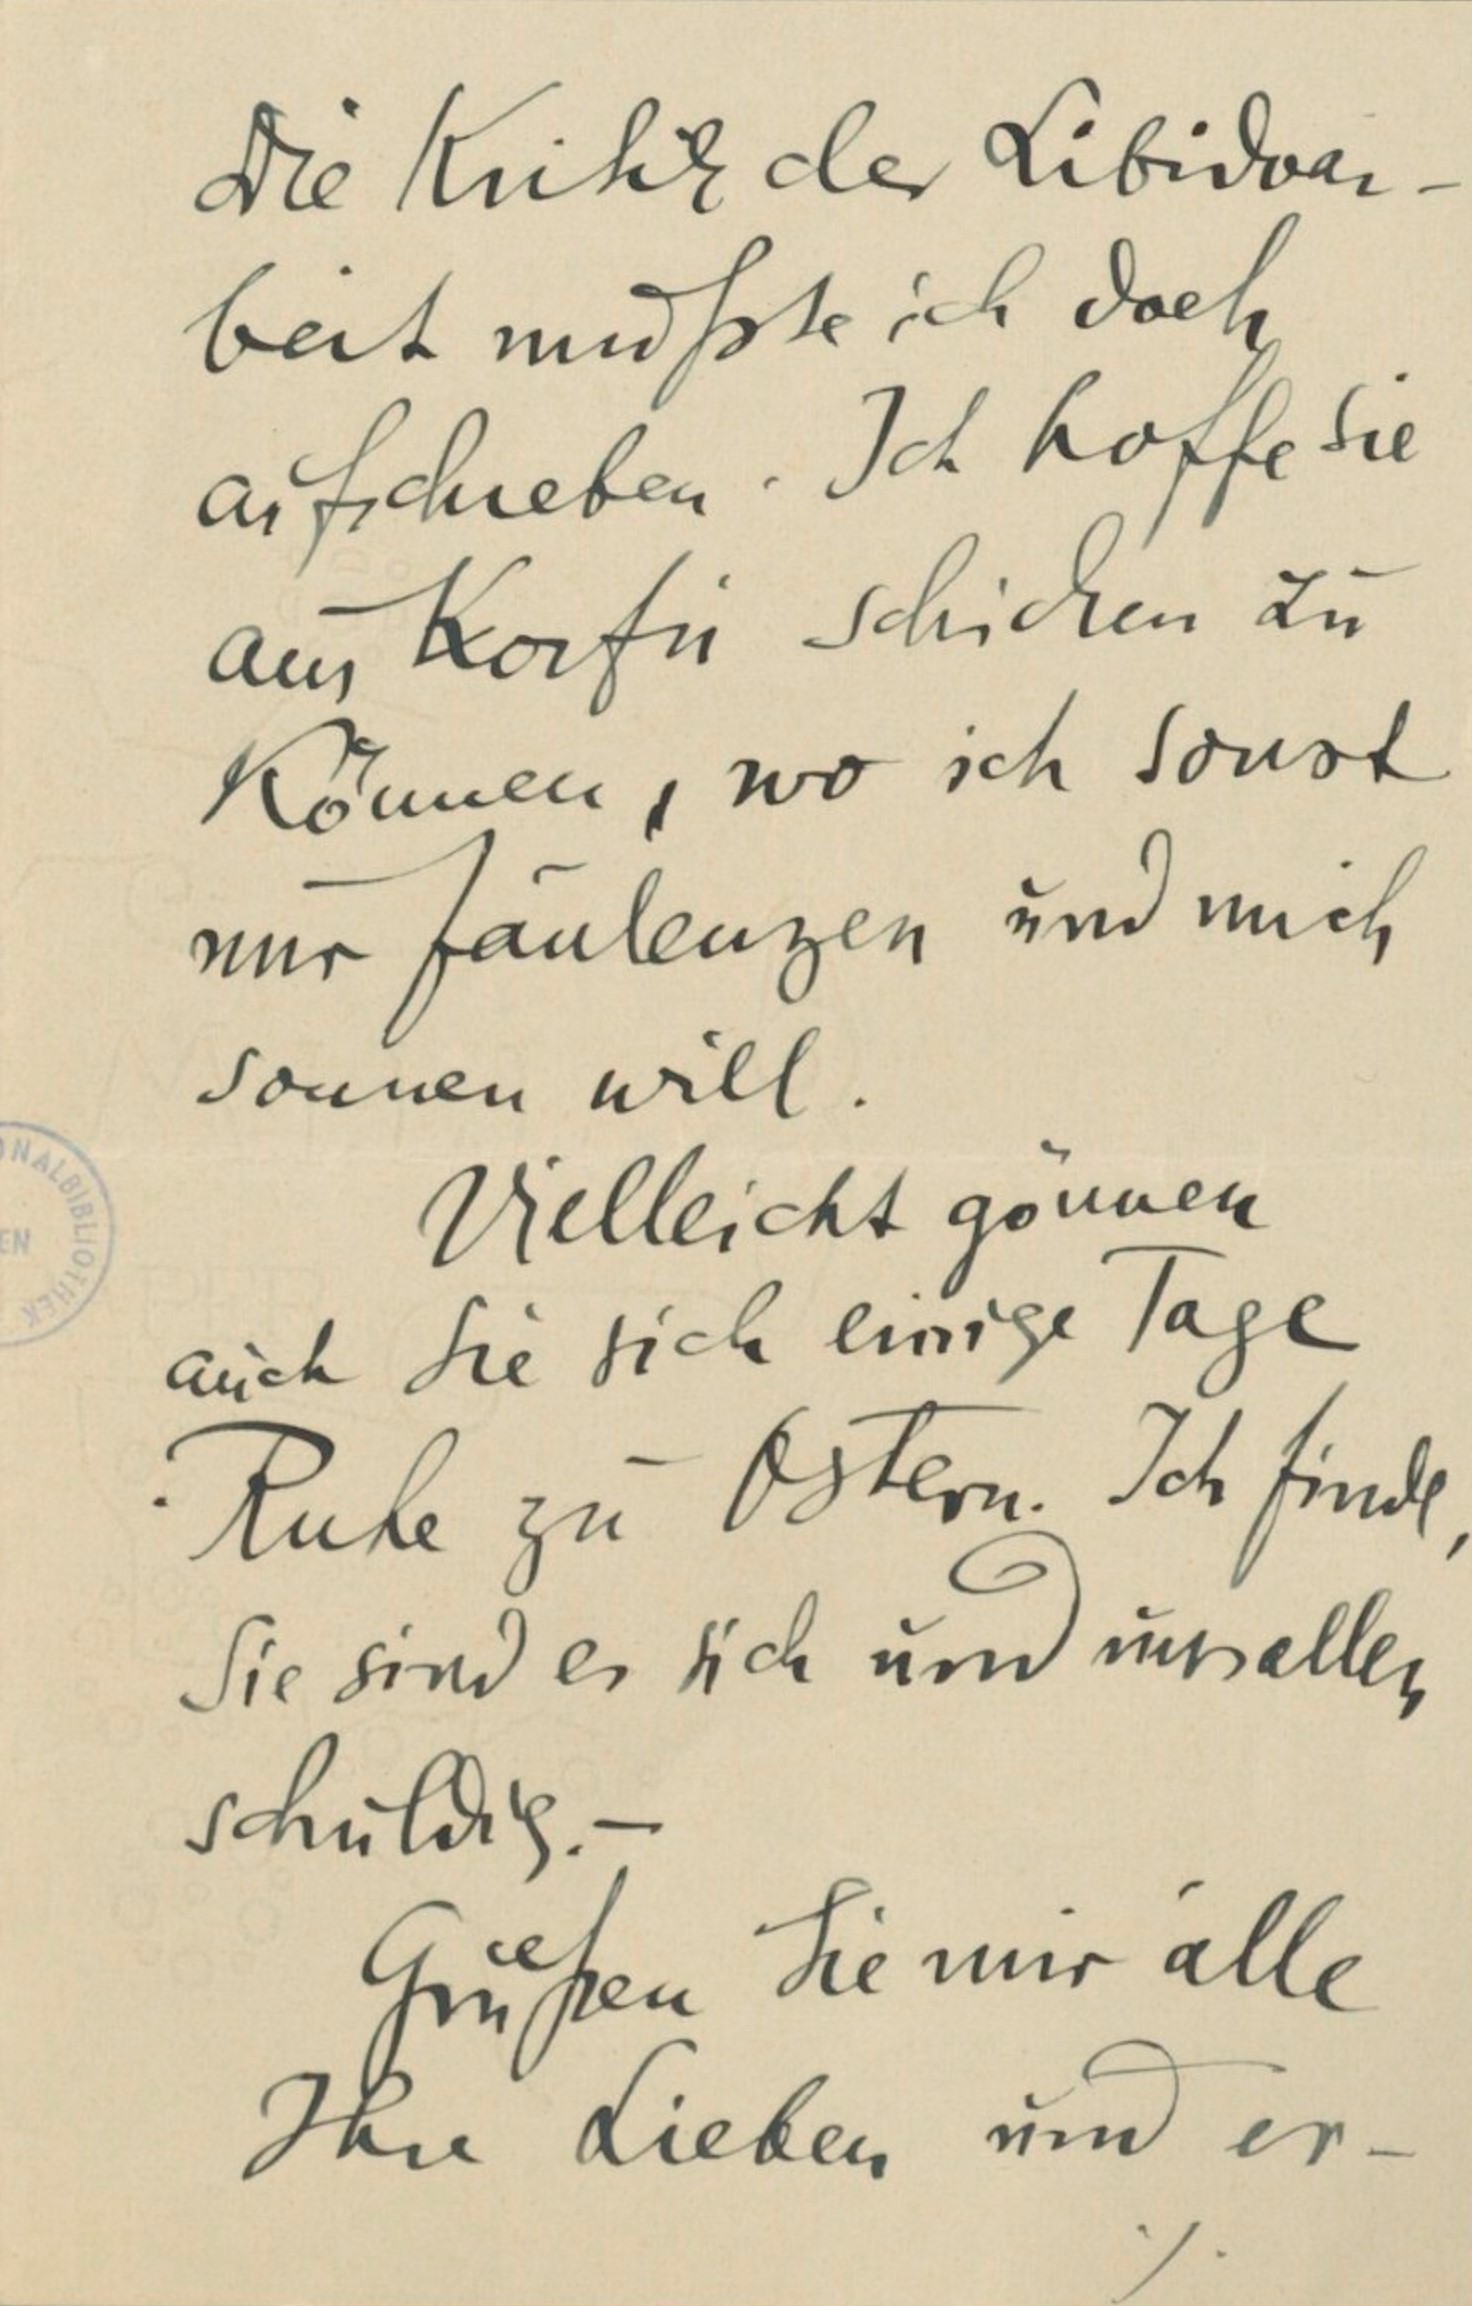 Die Kritik der Libidoar-
beit mußte ich doch
aufschieben. Ich hoffe sie
aus Korfu schicken zu
können, wo ich sonst
nur faulenzen und mich
sonnen will.
Vielleicht gönnen
auch Sie sich einige Tage
Ruhe zu Ostern. Ich finde,
Sie sind es sich und uns allen
schuldig.—
Grüßen Sie mir alle
Ihre Lieben und er-
./.
ONALBIBLIOTHEK
EN